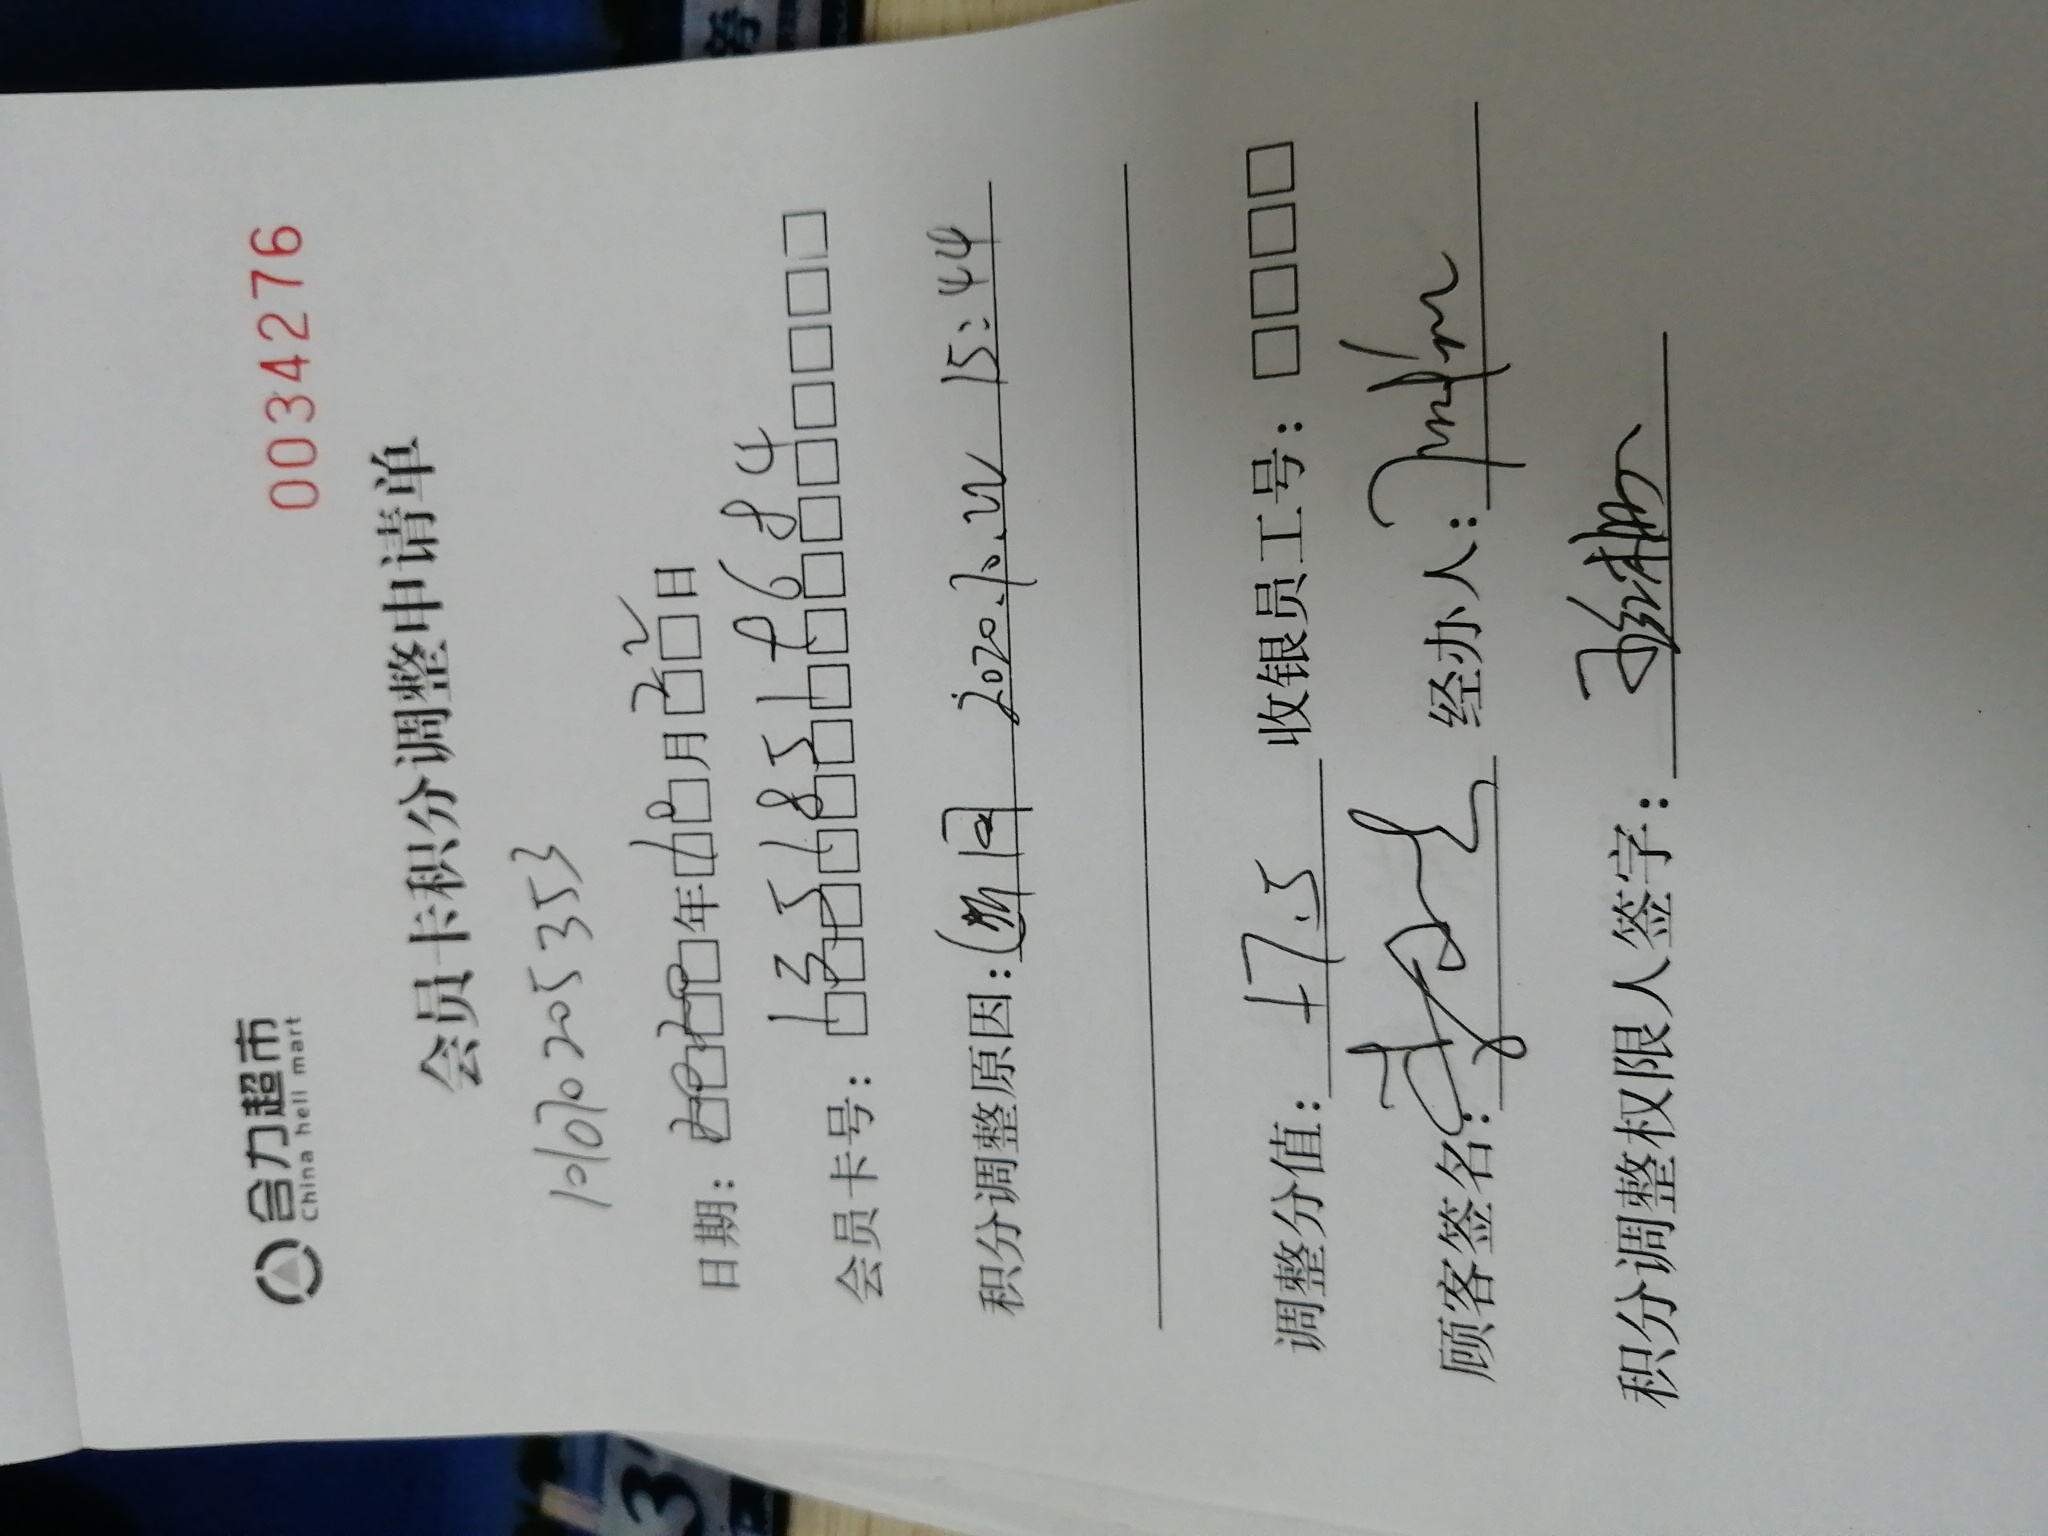 合力超市
China hell mart
0034276
会员卡积分调整申请单
101070205353
日期：2020年10月22日
会员卡号：13518519684
积分调整原因： 2020.10.22 15:44
调整分值：+7.5 收银员工号：
顾客签名： 经办人：
积分调整权限人签字：